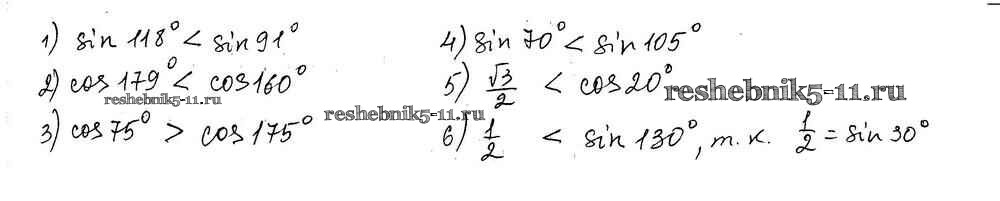 1) sin 118° < sin 91°
2) cos 179° < cos 160°
reshebnik5-11.ru
3) cos 75° > cos 175°
reshebnik5-11.ru
4) sin 70° < sin 105°
5) √3/2 < cos 20°
reshebnik5-11.ru
6) 1/2 < sin 130°, т. к. 1/2 = sin 30°